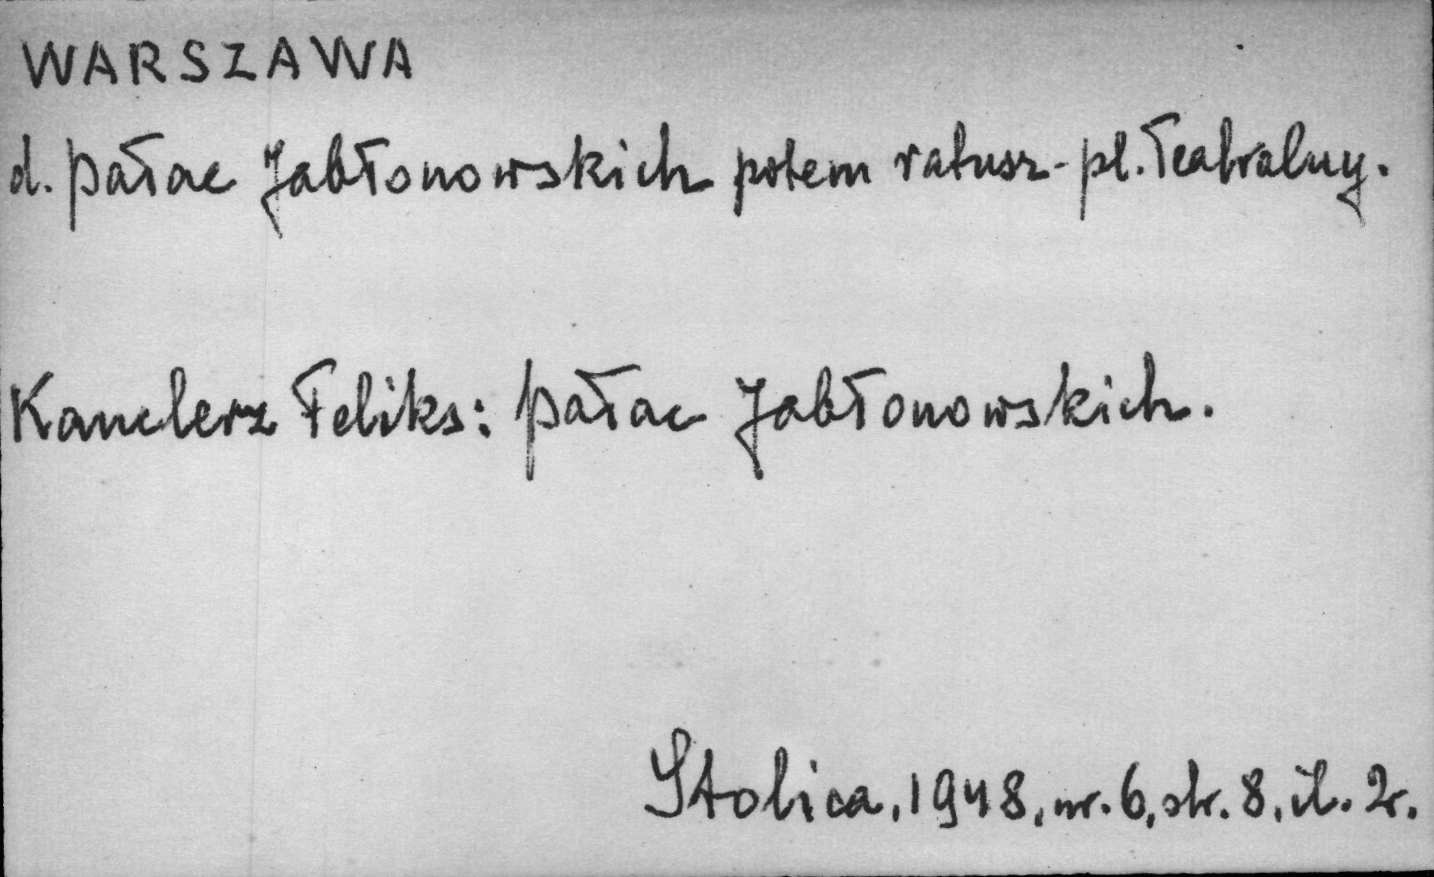 WARSZAWA
d. pałac Jabłonowskich potem ratusz - pl. Teatralny.
Kanclerz Feliks: pałac Jabłonowskich.
Stolica, 1948, nr. 6, str. 8, il. 2.